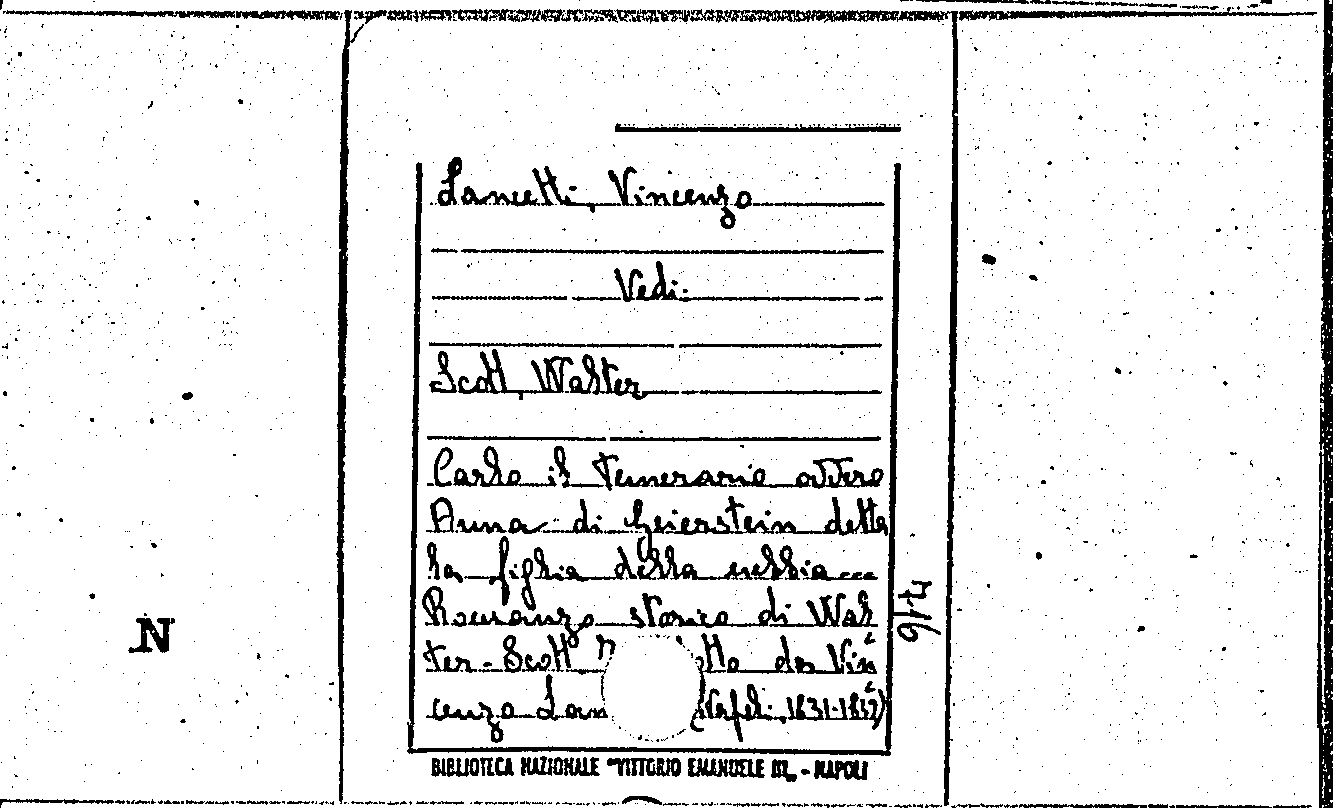 Lancetti, Vincenzo
Vedi:
Scott, Walter
Carlo il temerario ovvero
Anna di Geierstein detta
la figlia della nebbia...
Romanzo storico di Wal
ter-Scott da Vin
cenzo Lan (Napoli, 1831-
N
BIBLIOTECA NAZIONALE "VITTORIO EMANUELE III" - NAPOLI